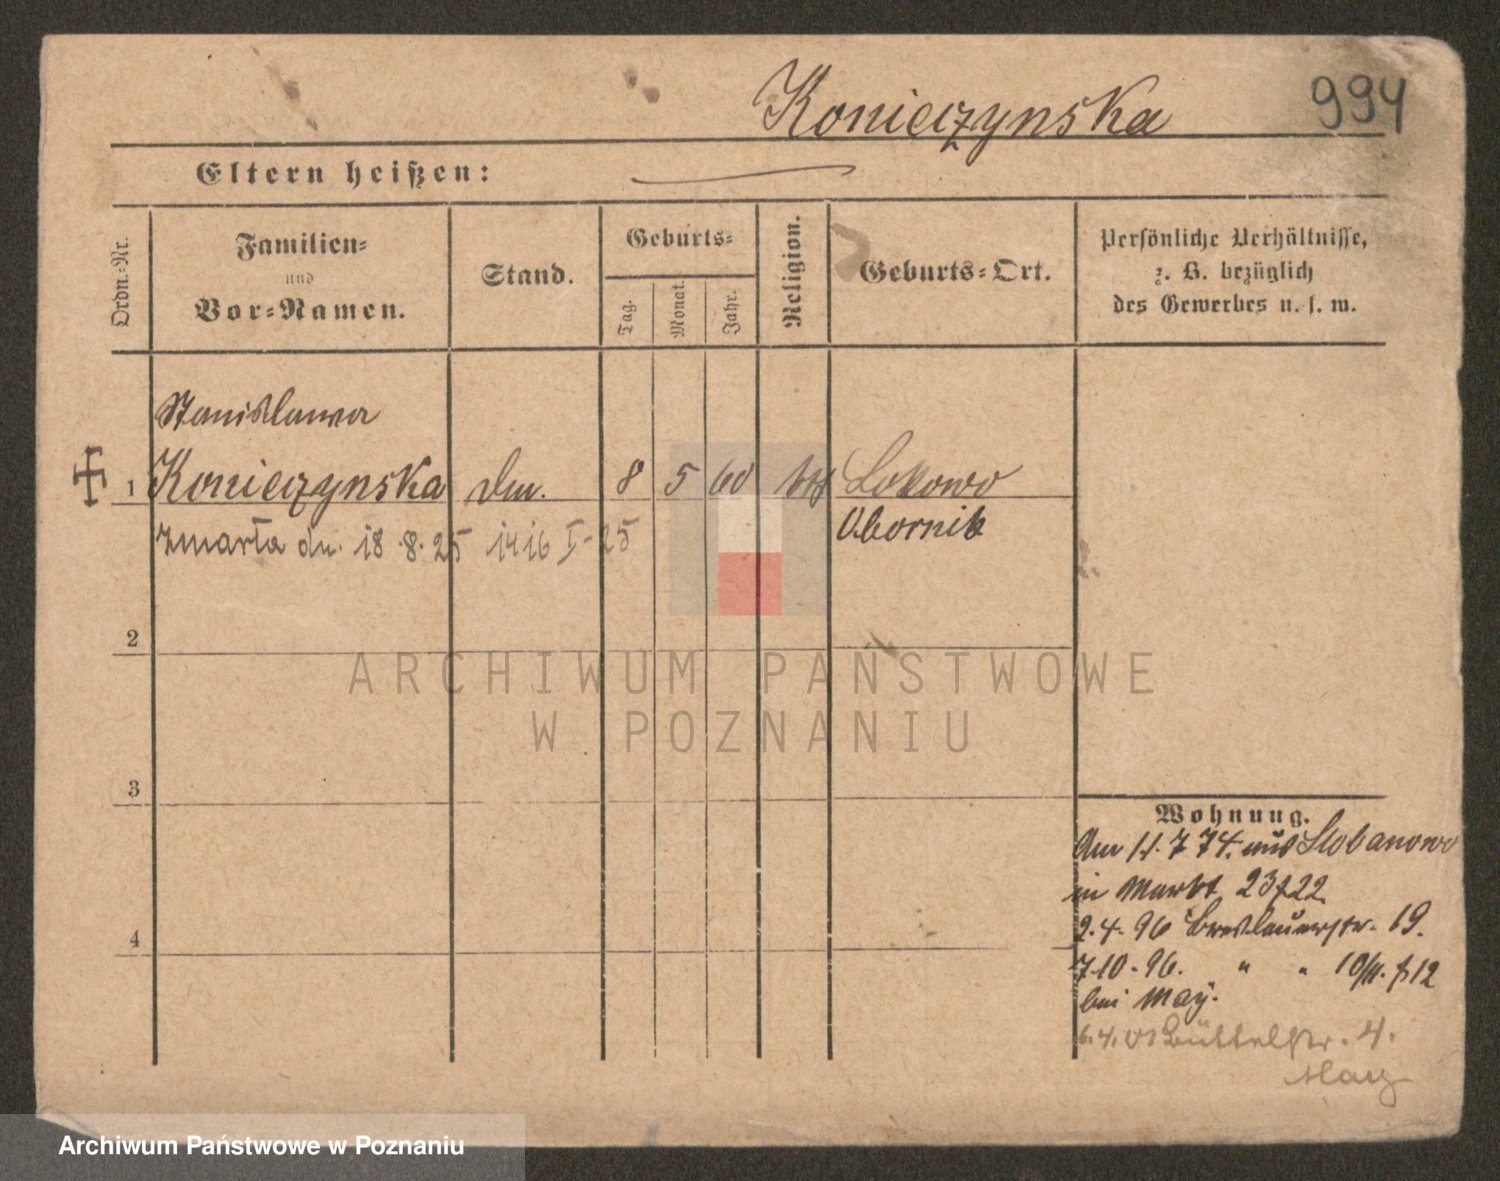 Konieczynska 994
Eltern heißen:
Ordn.-Nr.
Familien-
und
Vor-Namen.
Stand.
Geburts-
Tag.
Monat.
Jahr.
Religion.
Geburts-Ort.
Persönliche Verhältnisse,
z. B. bezüglich
des Gewerbes u. s. w.
Stanislawa
1 Konieczynska 8 5 60 Lokowo
Zmarła dn. 18.8.25 1416 I-25 Obornik
2
ARCHIWUM PAŃSTWOWE
W POZNANIU
3
Wohnung.
Am 11.7.74. aus Slobanowo
in Markt 23/22.
2.4.96 Breslauerstr. 19.
7.10.96. " " 10/11. 12
bei May.
6.4.01 Büttelstr. 4.
May
4
Archiwum Państwowe w Poznaniu